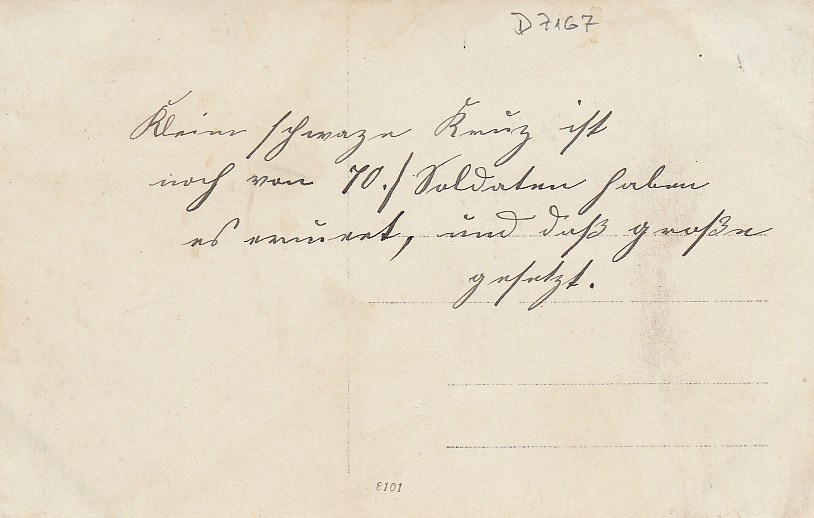 D7167
Kleine schwaze Kruz ist
noch von 70./ Soldaten haben
es ernuert, und daß große
gesetzt.
8101